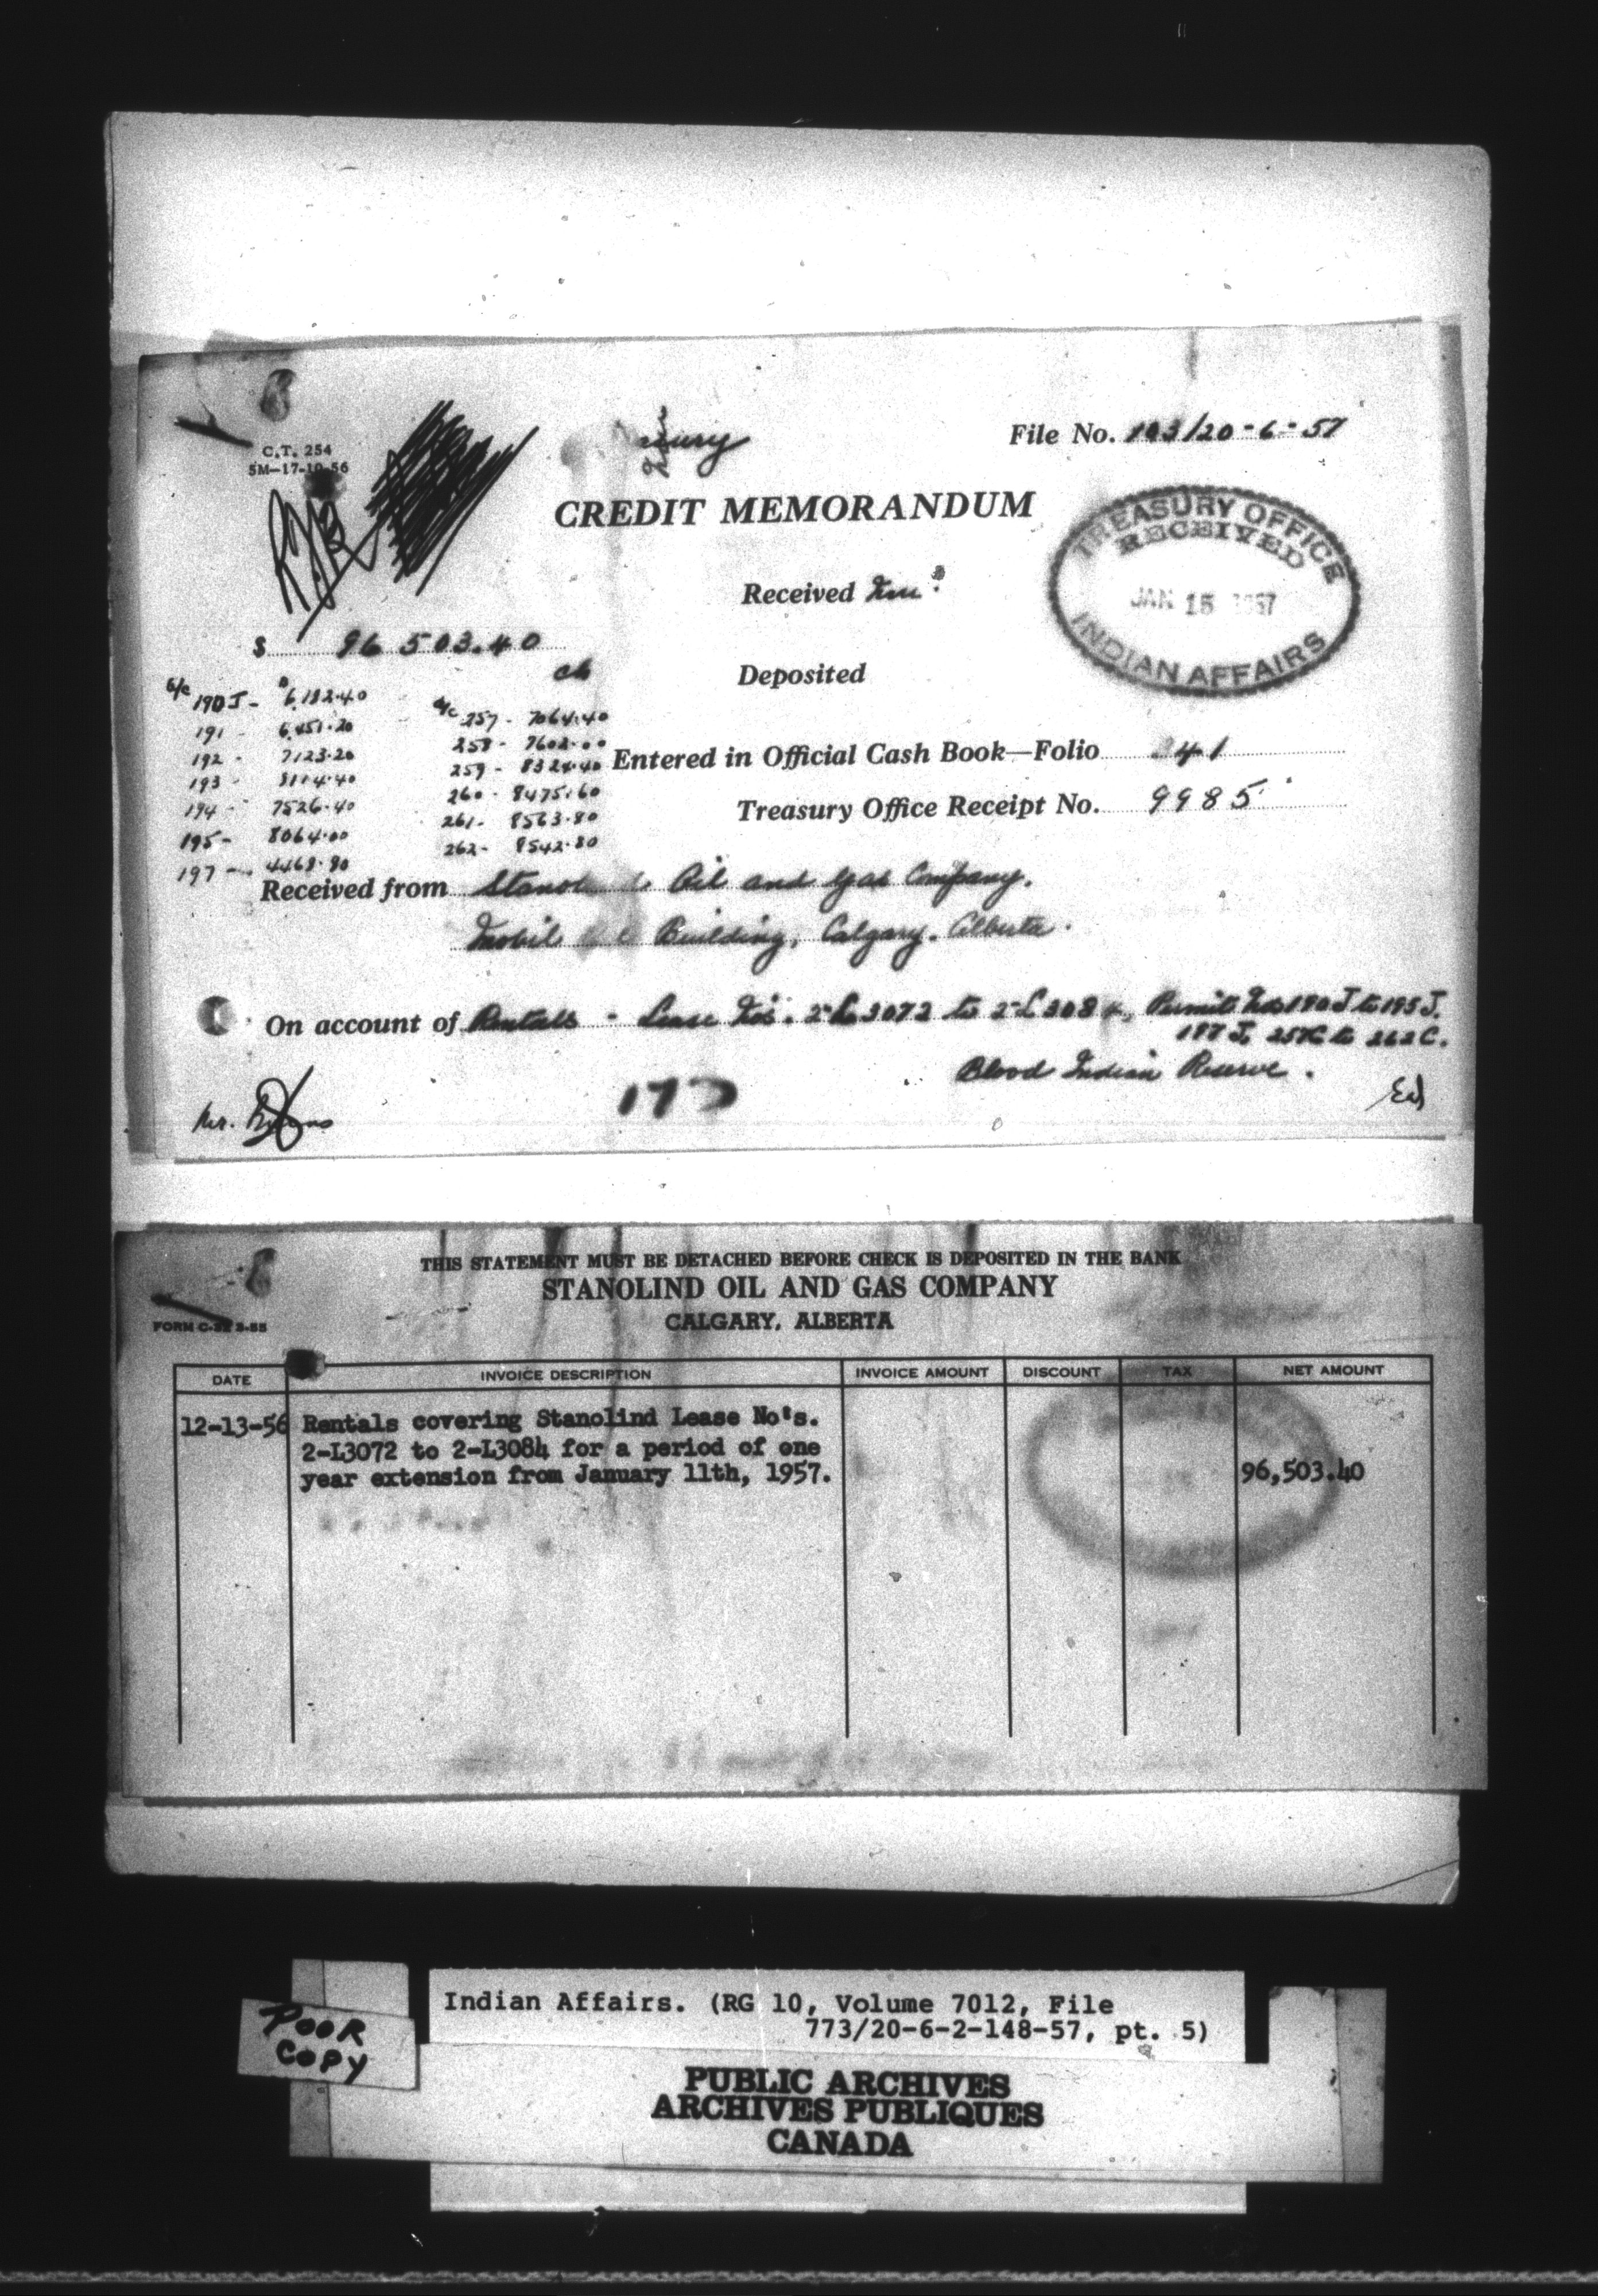 C.T. 254
5M—17-10-56
File No. 193/20-6-57
CREDIT MEMORANDUM
TREASURY OFFICE
RECEIVED
JAN 15 1957
INDIAN AFFAIRS
Received
$ 96 503.40
Deposited
a/c 190 J - 6,182.40
191 - 6,451.20
192 - 7123.20
193 - 8114.40
194 - 7526.40
195 - 8064.00
197 - 4468.80
a/c 257 - 7064.40
258 - 7602.00
259 - 8324.40
260 - 8475.60
261 - 8563.80
262 - 8542.80
Entered in Official Cash Book—Folio 41
Treasury Office Receipt No. 9985
Received from Stanol Oil and Gas Company.
Mobil Building, Calgary. Alberta.
On account of Rentals - Lease No's. 2-L3072 to 2-L3084, Permits Nos 190J to 195J.
197 J, 257C to 262C.
Blood Indian Reserve.
Mr.
THIS STATEMENT MUST BE DETACHED BEFORE CHECK IS DEPOSITED IN THE BANK
STANOLIND OIL AND GAS COMPANY
CALGARY, ALBERTA
FORM C-32 3-55
DATE INVOICE DESCRIPTION INVOICE AMOUNT DISCOUNT TAX NET AMOUNT
12-13-56 Rentals covering Stanolind Lease No's.
2-L3072 to 2-L3084 for a period of one
year extension from January 11th, 1957. 96,503.40
POOR
COPY
Indian Affairs. (RG 10, Volume 7012, File
773/20-6-2-148-57, pt. 5)
PUBLIC ARCHIVES
ARCHIVES PUBLIQUES
CANADA